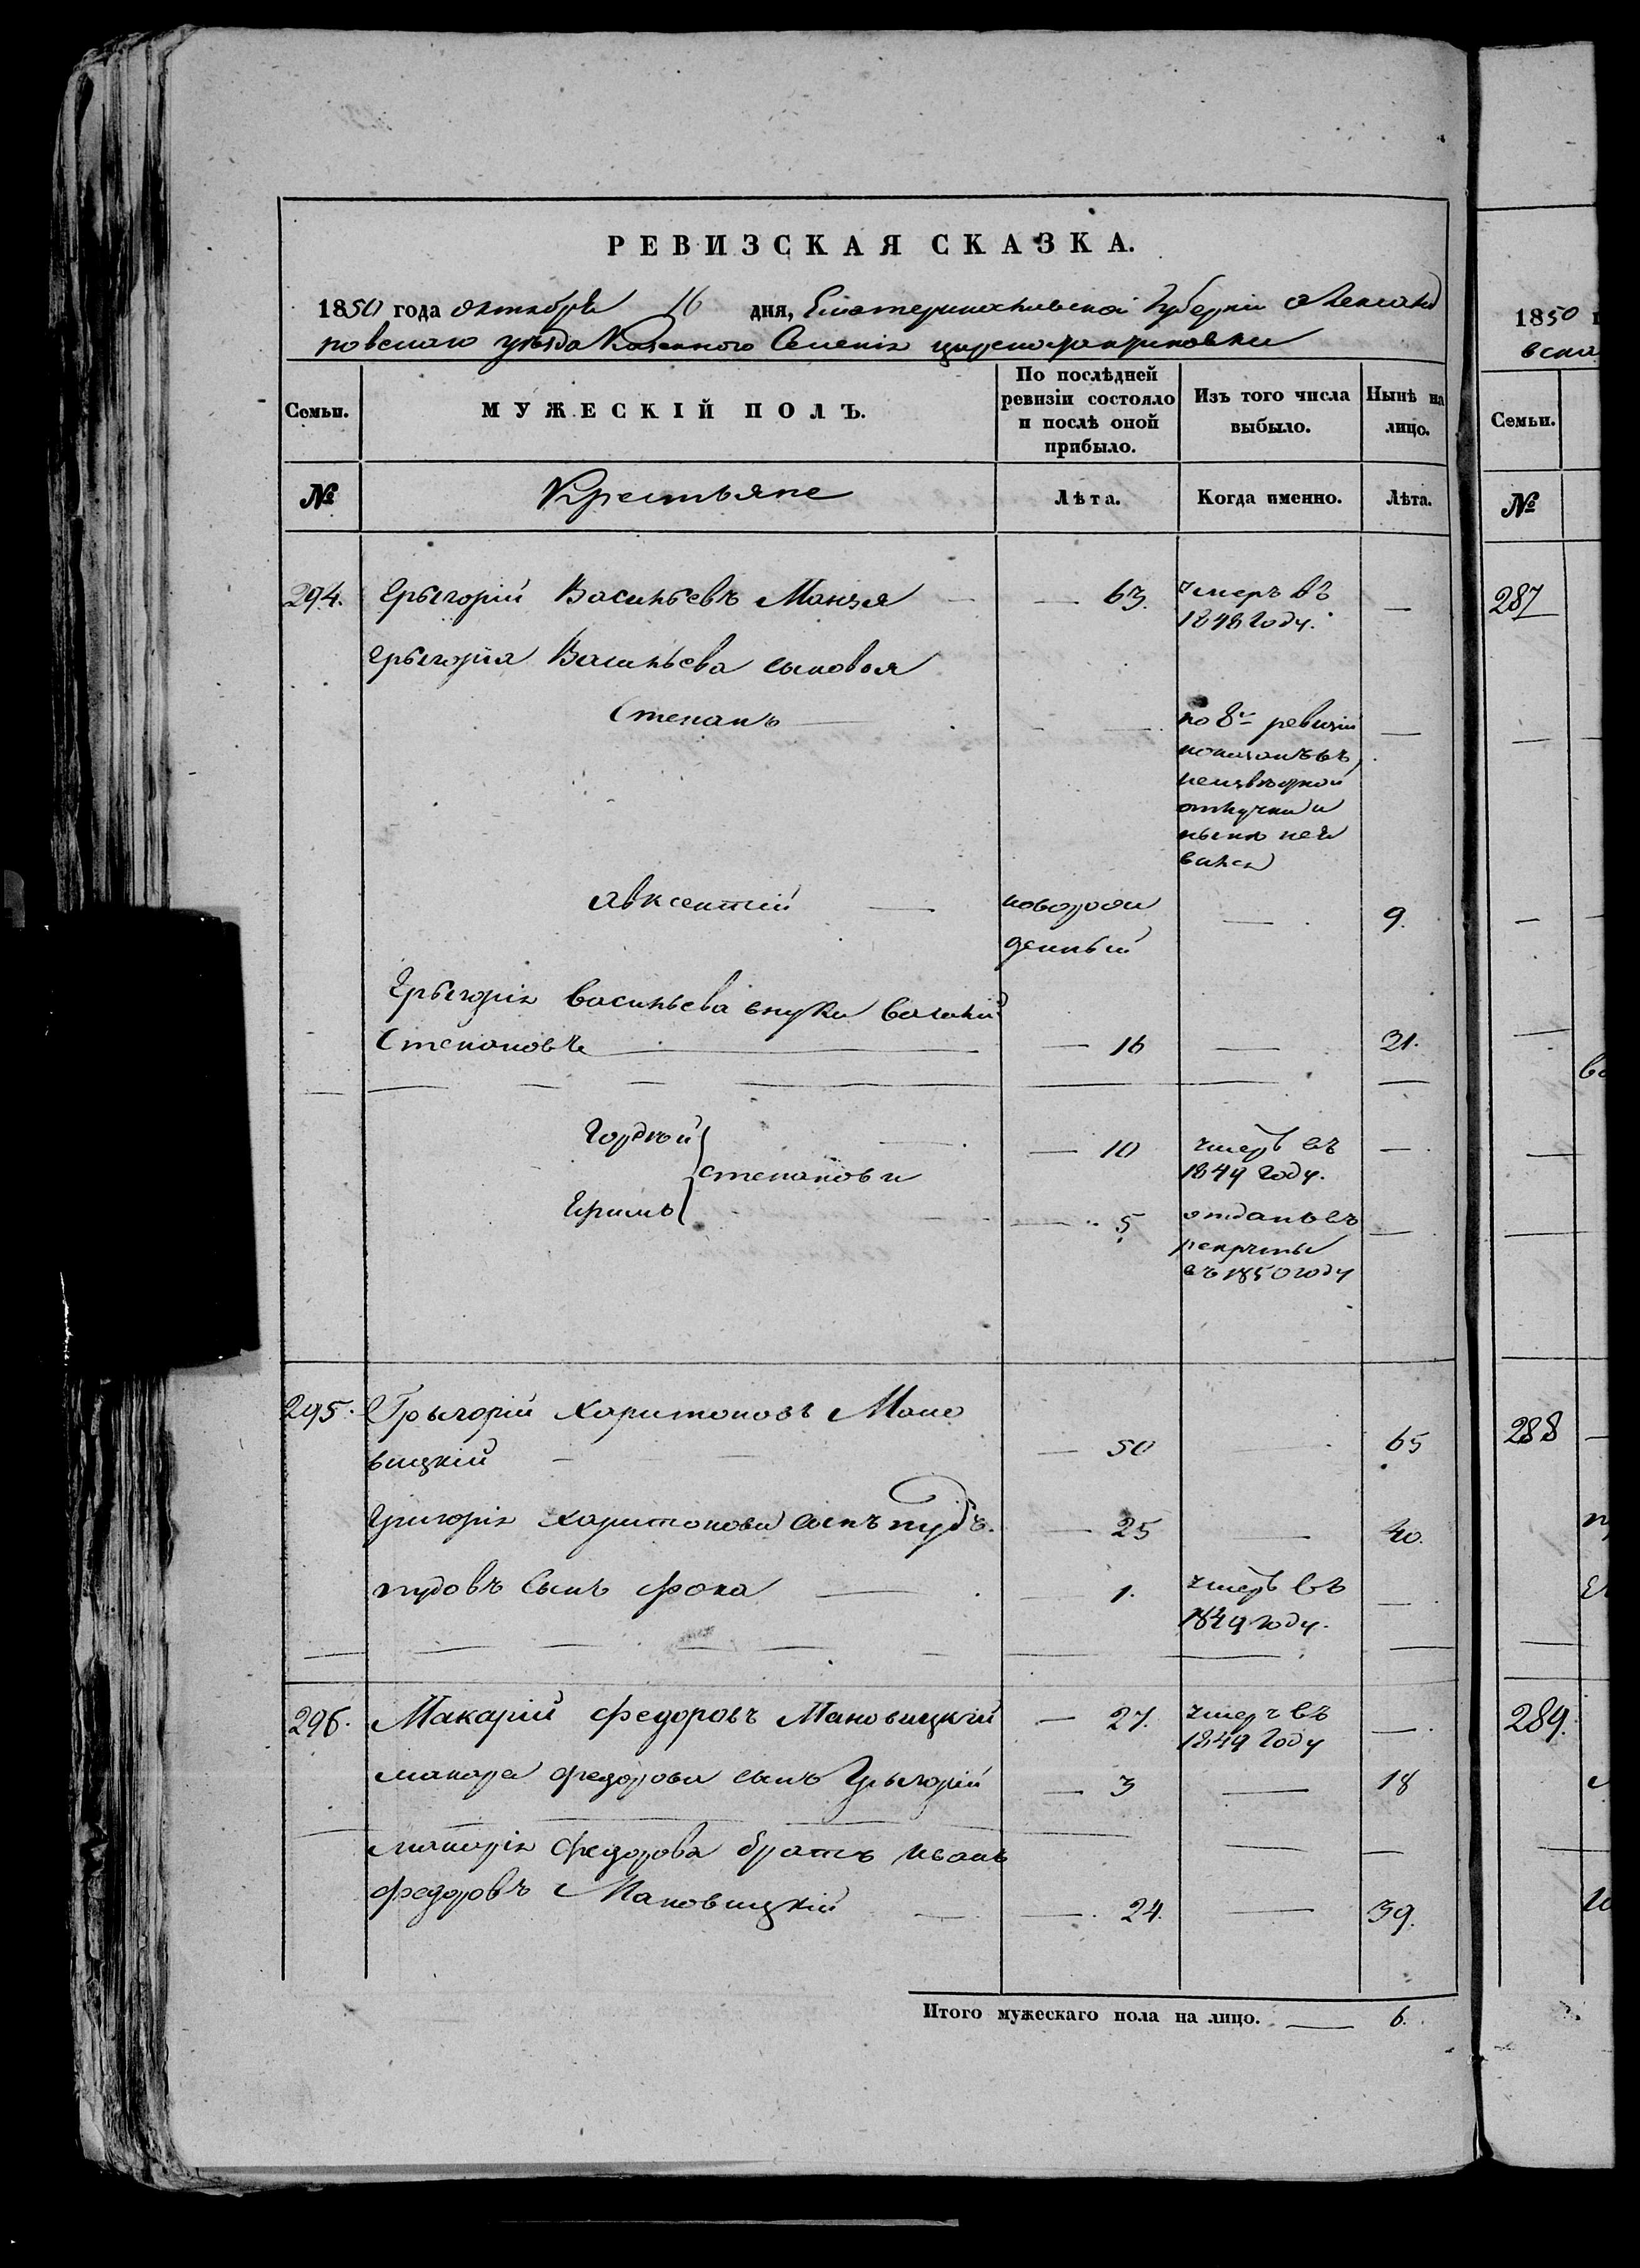 РЕВИЗСКАЯ СКАЗКА.
1850 года октября 16 дня, Екатеринославской Губернии Александ
ровскаго уѣзда Казенного Селенія
Семьи.
МУЖЕСКІЙ ПОЛЪ.
По послѣдней
ревизіи состояло
и послѣ оной
прибыло.
Изъ того числа
выбыло.
Нынѣ на
лицо.
№
Крестьяне
Лѣта.
Когда именно.
Лѣта.
294. Грыгорій Васильевъ — 63. умеръ въ —
1848 году.
Грыгорія Васильева сыновья
Степанъ — по 8й ревизіи —
показанъ въ
неизвѣстной
отлучки и
нынѣ неяв
вился
Авксентій — новорож — 9.
денный
Грыгорія Васильева внуки Василий
Степановъ — 16 — 31.
Гордѣй — 10 умеръ въ —
Степанови 1849 году.
— 5 отданъ въ —
рекруты
въ 1850 году
295. Грыгорій Харитоновъ Мано
вицкій — 50 — 65
Григорія Харитонова сынъ пудъ. — 25 — 40.
пудовъ Сынъ фока — 1. умеръ въ —
1849 году.
296. Макарій федоровъ Мановицкій — 27. умеръ въ —
1849 году
макара федорова сынъ Грыгорій — 3 — 18
макарія федорова братъ иванъ — —
федоровъ Мановицкій — 24. — 39.
Итого мужескаго пола на лицо. — 6.
1850
Семьи.
№
287
288
289.